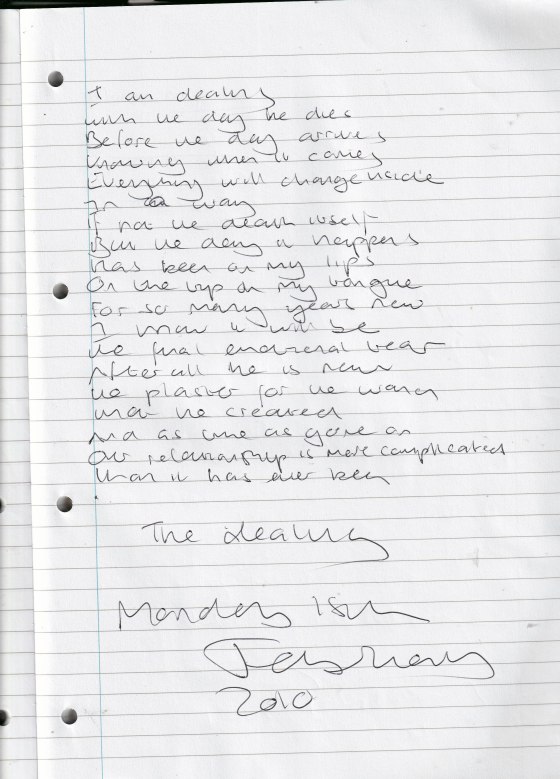 I am dealing
with the day he dies
Before the day arrives
Knowing when it comes
Everything will change inside
In a way
If not the death itself
But the day it happens
Has been on my lips
On the tip on my tongue
For so many years now
I know it will be
the final emotional tear
After all he is now
the plaster for the
that he created
And as time as gone on
Our relationship is more complicated
than it has ever been
The dealing
Monday 15th
2010